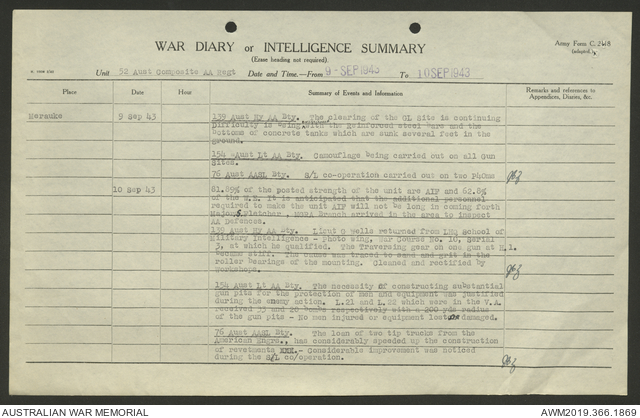 WAR DIARY or INTELLIGENCE SUMMARY
(Erase heading not required).
Army Form C. 2118
(adapted)
Unit 52 Aust Composite AA Regt Date and Time.—From 9 - SEP 1943 To 10 SEP 1943
Place Date Hour Summary of Events and Information Remarks and references to
Appendices, Diaries, &c.
Merauke 9 Sep 43 139 Aust Hy AA Bty. The clearing of the GL Site is continuing
difficulty is being with the Reinforced steel ware and the
Bottoms of concrete tanks which are sunk several feet in the
ground.
154 Aust Lt AA Bty. Camouflage being carried out on all Gun
Sites.
76 Aust AASL Bty. S/L co-operation carried out on two P40ms
10 Sep 43 81.85% of the posted strength of the unit are AIF and 62.8%
of the W.E. It is anticipated that the additional personnel
required to make the unit AIF will not be long in coming forth
Major S Fletcher, Branch arrived in the area to inspect
AA Defences.
139 Aust Hy AA Bty. Lieut G Wells returned from LHQ School of
Military Intelligence - Photo wing, War Course No. 10, Serial
3, at which he qualified. The Traversing gear on one gun at H.1
became stiff. The cause was traced to sand and grit in the
roller bearings of the mounting. Cleaned and rectified by
Workshops.
154 Aust Lt AA Bty. The necessity of constructing substantial
gun pits for the protection of men and equipment was justified
during the enemy action. L.21 and L.22 which were in the V.A.
received 33 and 20 bombs respectively with a 200 yds radius
of the gun pits - No men injured or equipment lost or damaged.
76 Aust AASL Bty. The loan of two tip trucks from the
American Engrs., has considerably speeded up the construction
of revetments XXX.- Considerable improvement was noticed
during the S/L co/operation.
AUSTRALIAN WAR MEMORIAL AWM2019.366.1869